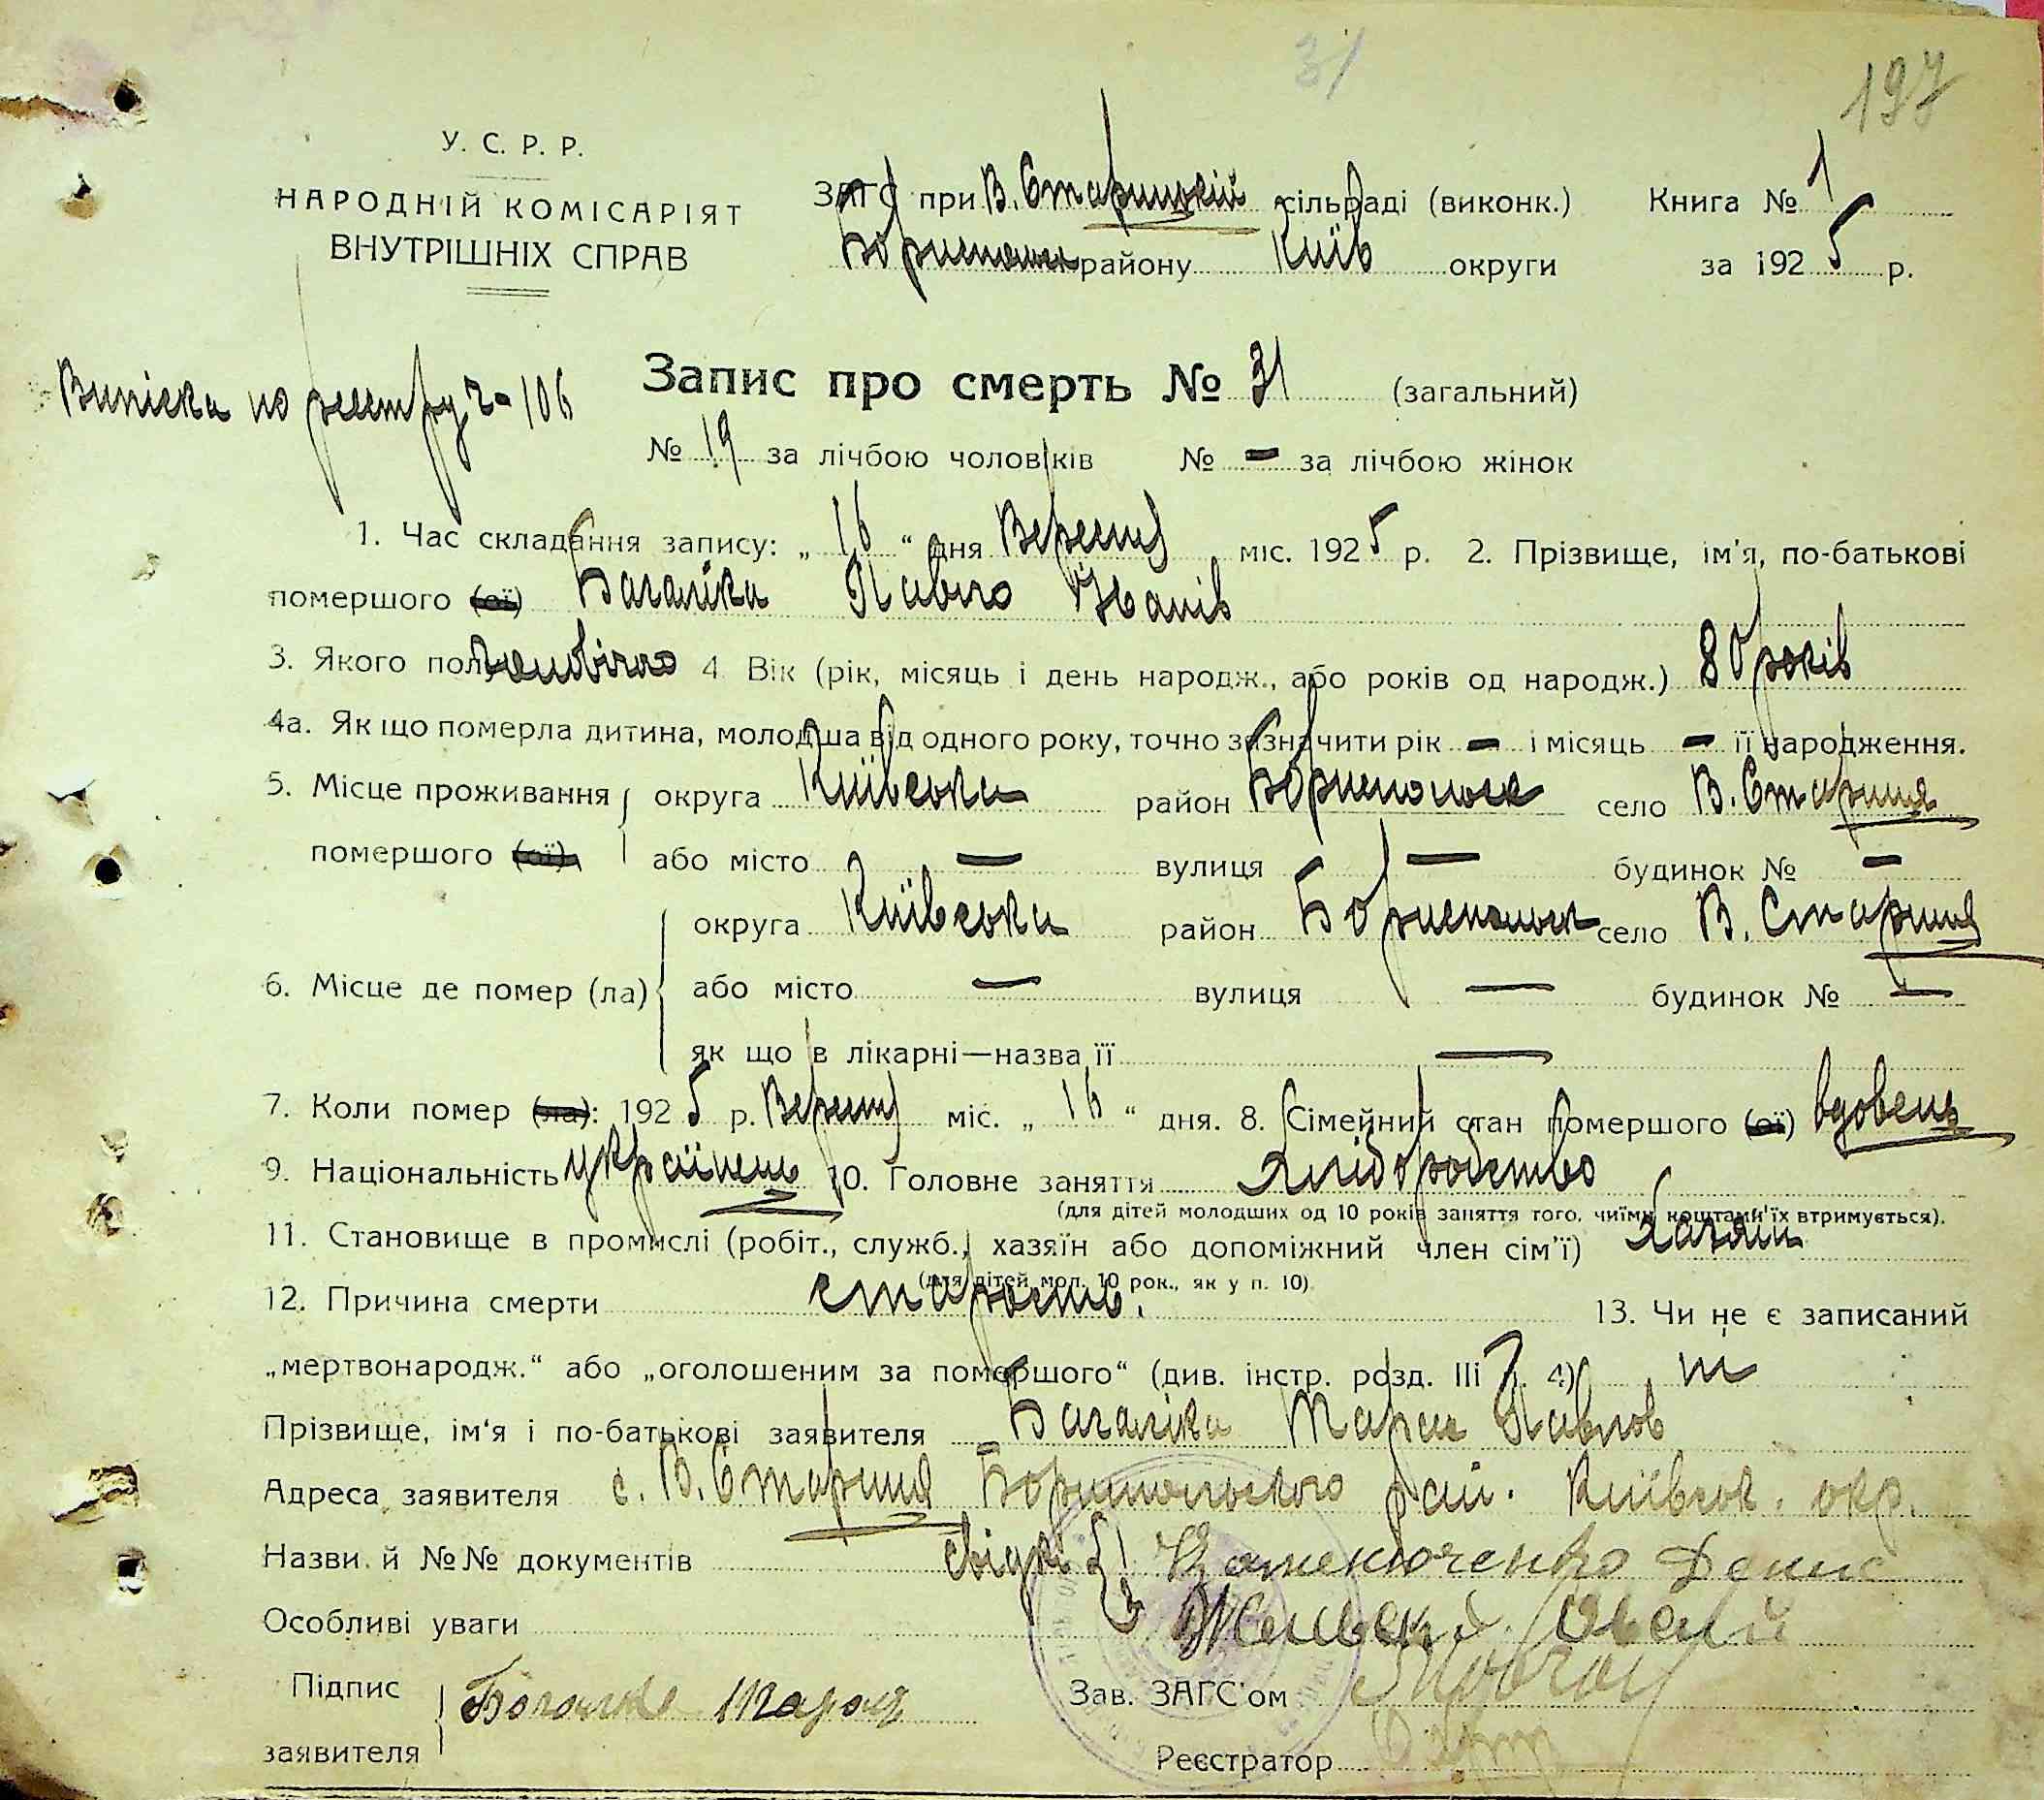 31
197
У. С. Р. Р.
НАРОДНІЙ КОМІСАРІЯТ
ВНУТРІШНІХ СПРАВ
ЗАГС при В. Старицькій сільраді (виконк.)
Бориспольск району Київ округи
Книга № 1
за 1925 р.
Випіска по реестру ч- 106
Запис про смерть № 31 (загальний)
№ 19 за лічбою чоловіків № — за лічбою жінок
1. Час складання запису: „ 16 “ дня Вересня міс. 1925 р. 2. Прізвище, ім'я, по-батькові
помершого (ої) Багаліка Павло Іванів
3. Якого пол 4. Вік (рік, місяць і день народж., або років од народж.) 80 років
4а. Як що померла дитина, молодша від одного року, точно зазначити рік — і місяць — її народження.
5. Місце проживання округа Київська район Бориспольск село В. Стариця
помершого (ої) або місто — вулиця — будинок № —
округа Київська район Бориспольск село В. Стариця
6. Місце де помер (ла) або місто — вулиця — будинок № —
як що в лікарні—назва її —
7. Коли помер (ла): 1925 р. Вересня міс. „ 16 “ дня. 8. Сімейний стан помершого (ої) вдовець
9. Національність українець 10. Головне заняття хліборобство
(для дітей молодших од 10 років заняття того, чиїми коштами їх втримується).
11. Становище в промислі (робіт., служб., хазяїн або допоміжний член сім'ї) Хазяїн
(для дітей мол. 10 рок., як у п. 10)
12. Причина смерти старость. 13. Чи не є записаний
„мертвонародж.“ або „оголошеним за помершого“ (див. інстр. розд. III п. 4) ні
Прізвище, ім'я і по-батькові заявителя Багаліка Тарас Павлов
Адреса заявителя с. В. Стариця Бориспольского рай. Київськ. окр.
Назви й №№ документів свідки 1 Денис
Особливі уваги 2
Підпис заявителя Тарас
Зав. ЗАГС'ом
Реєстратор